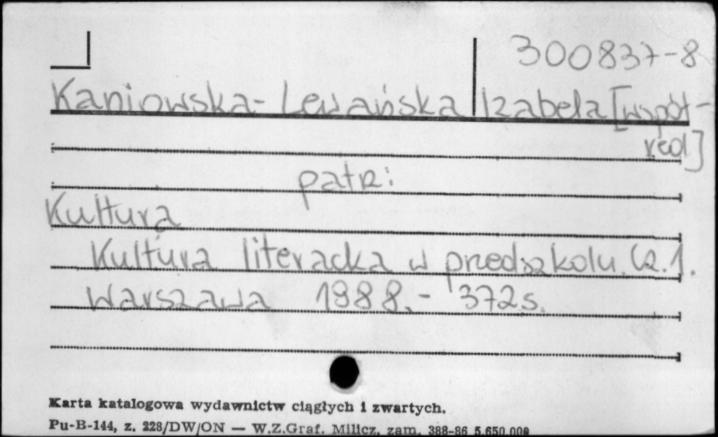 300837-8
Kaniowska-Lewańska Izabela [współ-
red]
patrz:
Kultura
Kultura literacka w przedszkolu. Cz. 1.
Warszawa 1988.- 372 s.
Karta katalogowa wydawnictw ciągłych i zwartych.
Pu-B-144, z. 228/DW/ON — W.Z.Graf. Milicz, zam. 388-86 5.650.000